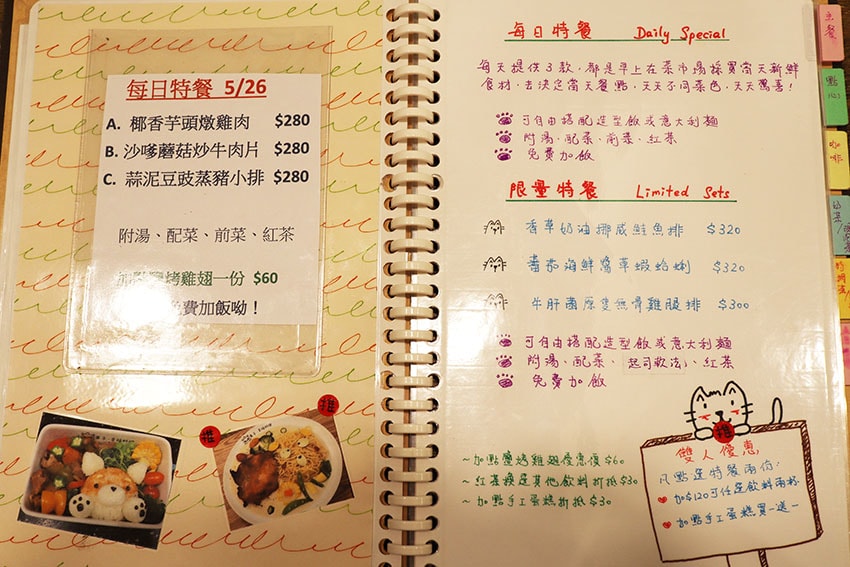 每日特餐 5/26
A. 椰香芋頭燉雞肉 $280
B. 沙嗲蘑菇炒牛肉片 $280
C. 蒜泥豆豉蒸豬小排 $280
附湯、配菜、前菜、紅茶
烤雞翅一份 $60
費加飯呦！
推
推
每日特餐 Daily Special
每天提供3款，都是早上在菜市場採買當天新鮮
食材，去決定當天餐點，天天不同菜色，天天驚喜！
可自由搭配造型飯或意大利麵
附湯、配菜、前菜、紅茶
免費加飯
限量特餐 Limited Sets
香草奶油挪威鮭魚排 $320
番茄海鮮醬草蝦蛤蜊 $320
牛肝菌厚隻無骨雞腿排 $300
可自由搭配造型飯或意大利麵
附湯、配菜、起司軟法、紅茶
免費加飯
~加點鹽烤雞翅優惠價$60
~紅茶換其他飲料折抵$30
~加點手工蛋糕折抵$30
推
雙人優惠
凡點兩份
加$120可任選飲料兩杯
加點手工蛋糕買一送一
套餐
點心
咖啡